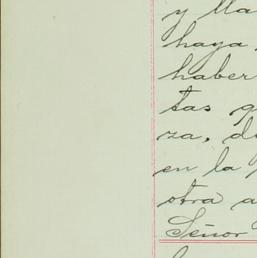 y lla
haya
haber
tas q
za, d
en la
otra a
Señor